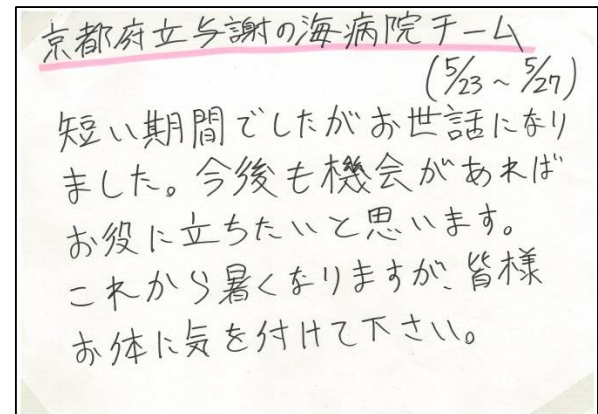 京都府立与謝の海病院チーム
(5/23～5/27)
短い期間でしたがお世話になり
ました。今後も機会があれば
お役に立ちたいと思います。
これから暑くなりますが、皆様
お体に気を付けて下さい。